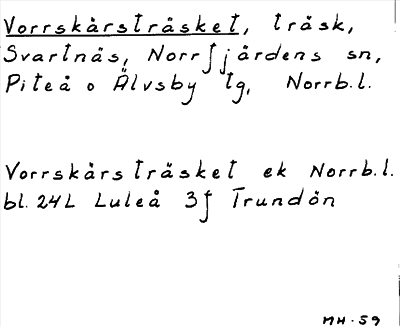 Vorrskärsträsket, träsk,
Svartnäs, Norrfjärdens sn,
Piteå o Älvsby tg, Norrb.l.
Vorrskärsträsket ek Norrb.l.
bl. 24L Luleå 3f Trundön
MH-59